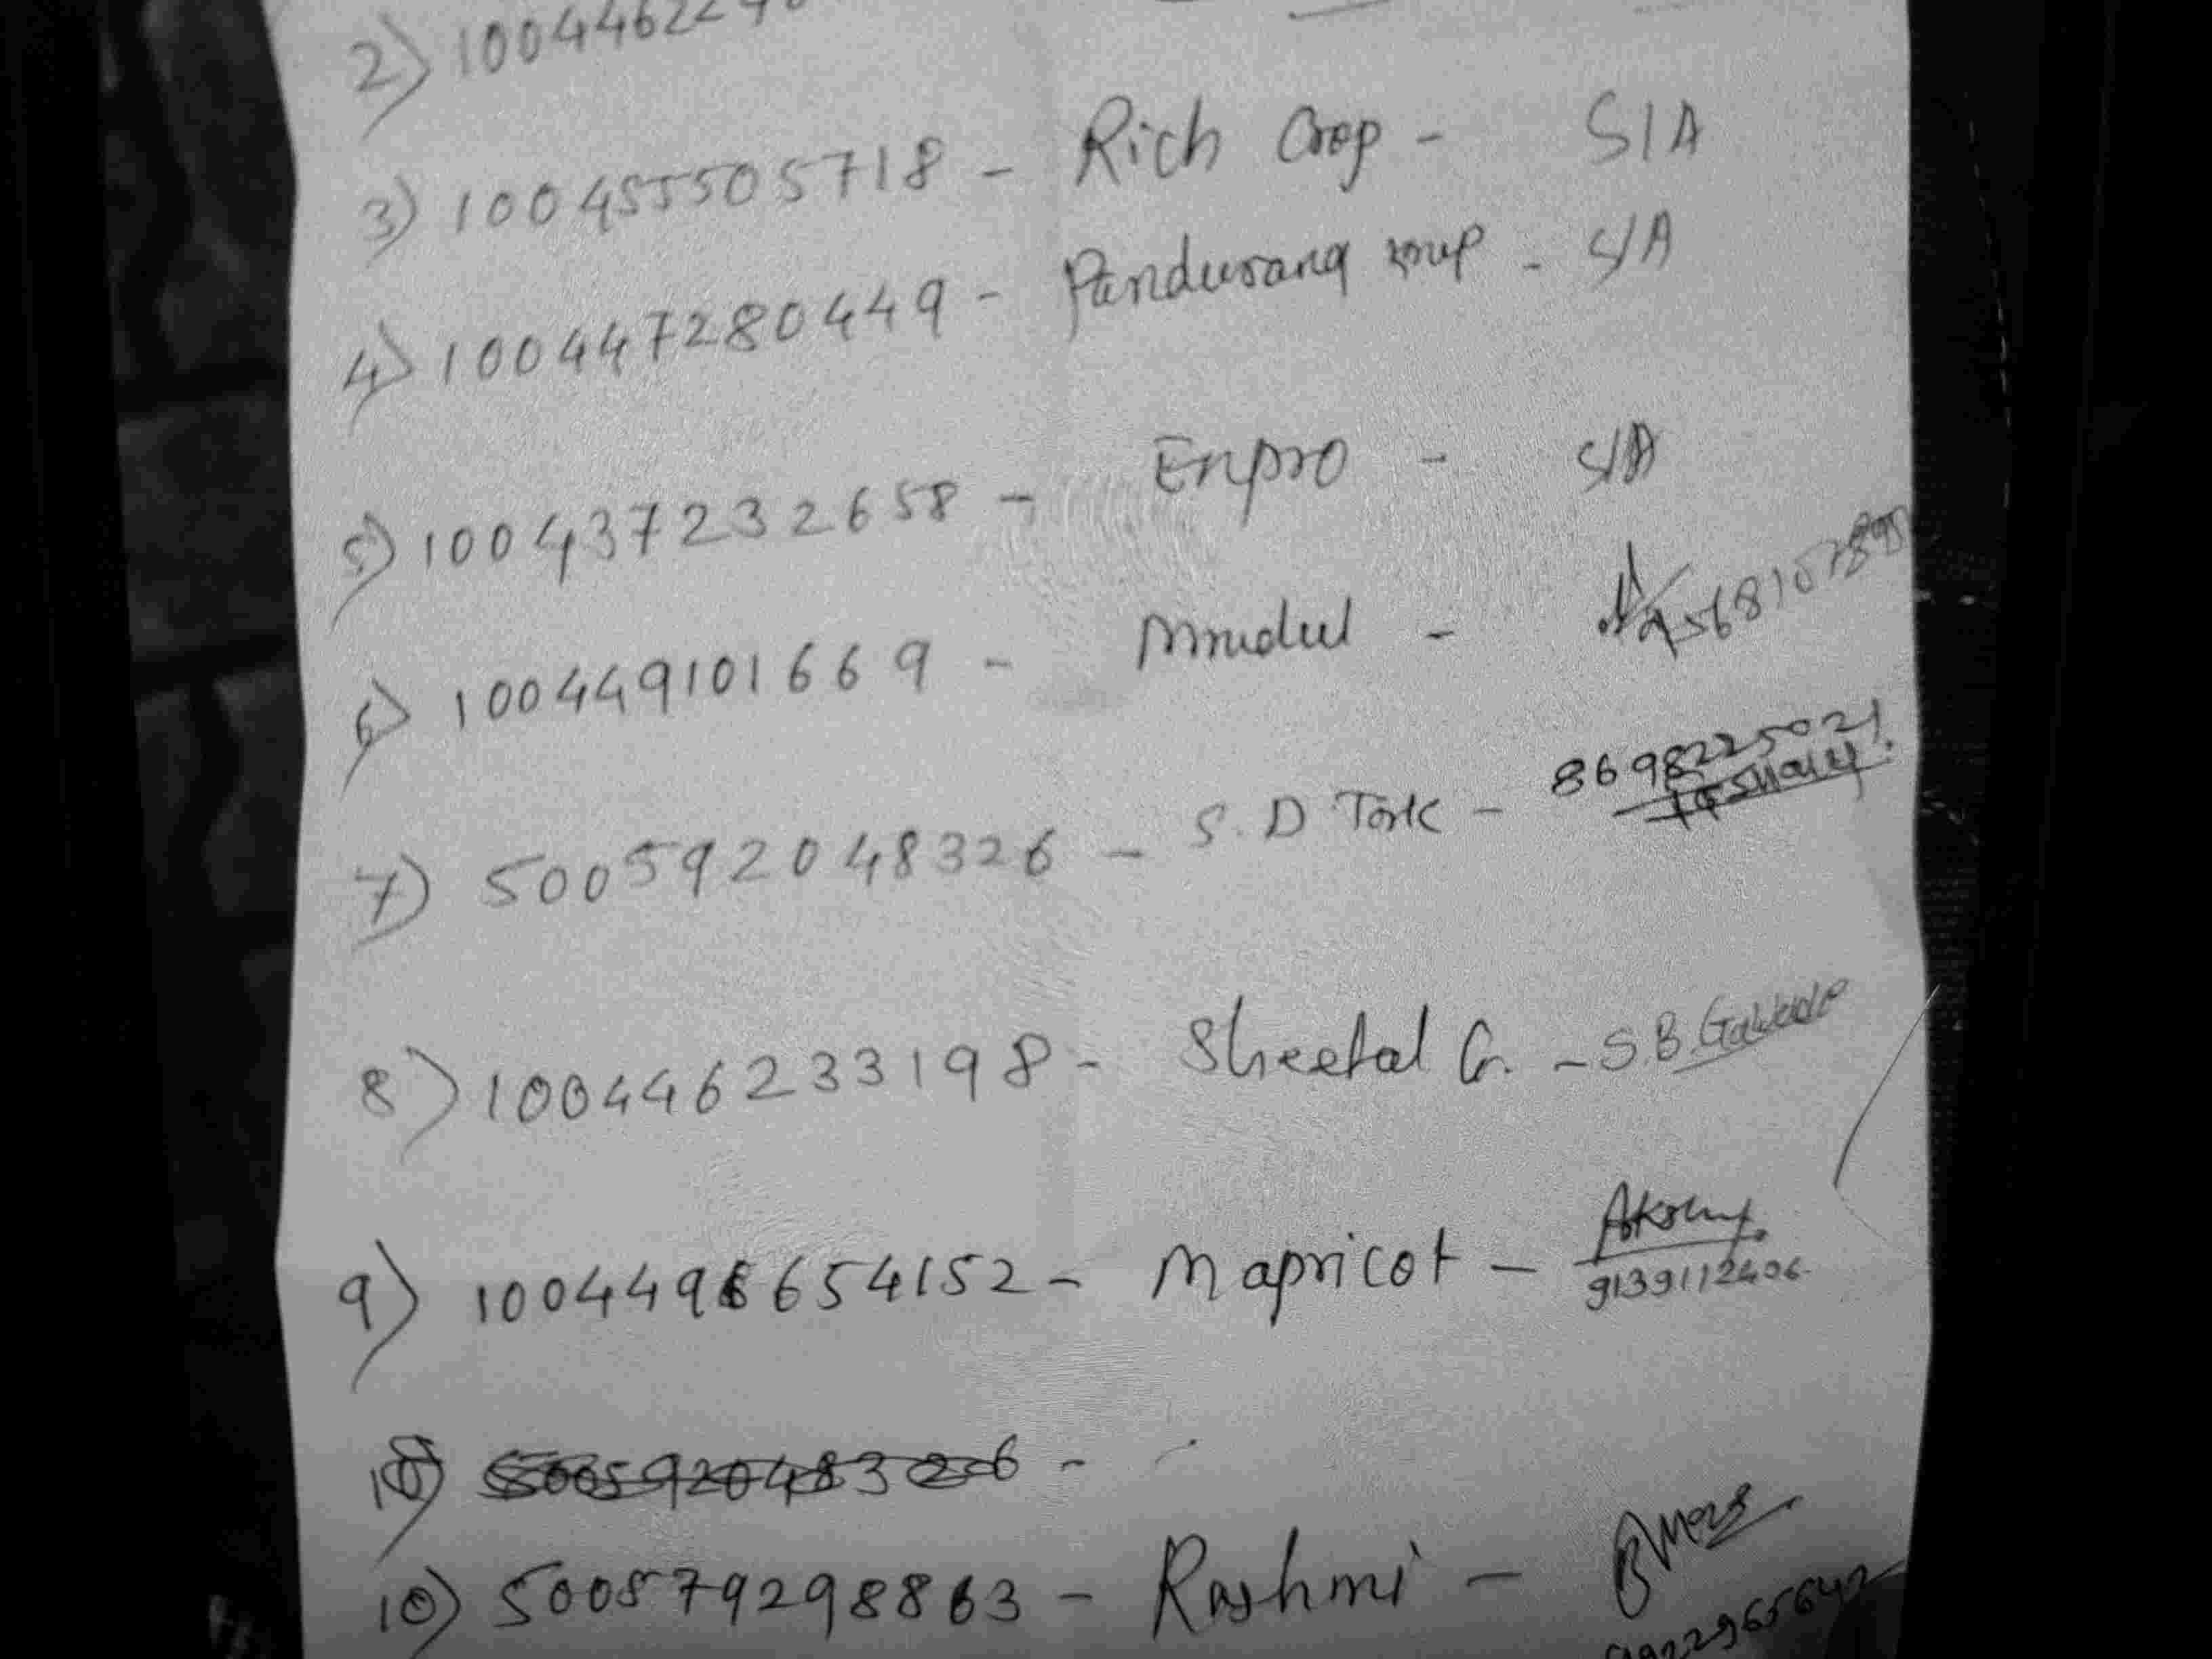 2) 100446224
3) 100455505718 - Rich Crop - S/A
4) 100447280449 - Pandurang - S/A
5) 100437232658 - Enpro - S/A
6) 100449101669 - Mrudul -
7) 500592048326 - S.D Tork - 8698225021
8) 100446233198 - Sheetal - S.B.Gawade
9) 100449 654152 - Mapricot - Akshay
9139112406
10) 500592048326 -
10) 500579298863 - Rashmi -